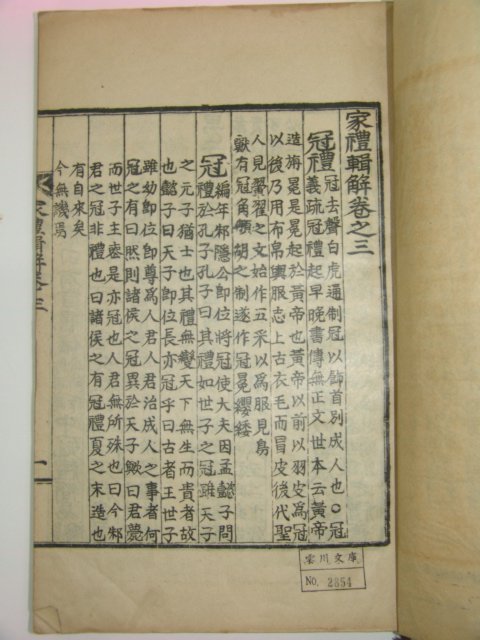 家禮輯解卷之三
冠禮冠去聲白虎通制冠以飾首別成人也○冠
義疏冠禮起早晚書傳無正文世本云黃帝
造旃冕是冕起於黃帝也黃帝以前以羽皮爲冠
以後乃用布帛輿服志上古衣毛而冒皮後代聖
人見翬翟之文始作五采以爲服見鳥
獸有冠角䫇胡之制遂作冠冕纓緌
冠禮編年邾隱公卽位將冠使大夫因孟懿子問
於孔子孔子曰其禮如世子之冠雖天子
之元子猶士也其禮無變天下無生而貴者故
也懿子曰天子卽位長亦冠乎曰古者王世子
雖幼卽位卽尊爲人君人君治成人之事者何
冠之有曰然則諸侯之冠異於天子歟曰君薨
而世子主喪是亦冠也人君無所殊也曰今邾
君之冠非禮也曰諸侯之有冠禮夏之末造也
有自來矣
今無譏焉
家禮輯解卷三
一
雲川文庫
No. 2854